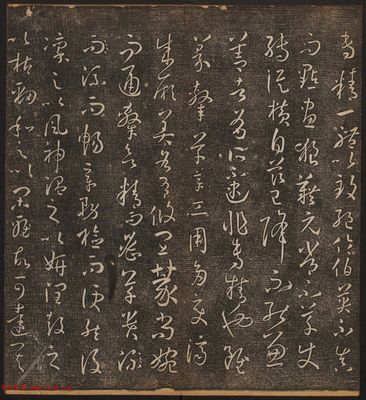 專精一體以致絕倫伯英不真
而點畫狼藉元常不草使
轉縱橫自茲已降不能兼
善者有所不逮非專精也雖
篆隸草章工用多變濟
成厥美各有攸宜篆尚婉
而通隸欲精而密草貴流
而流而暢章務檢而便然後
凜之以風神溫之以妍潤鼓之
以枯勁和之以閑雅故可達其